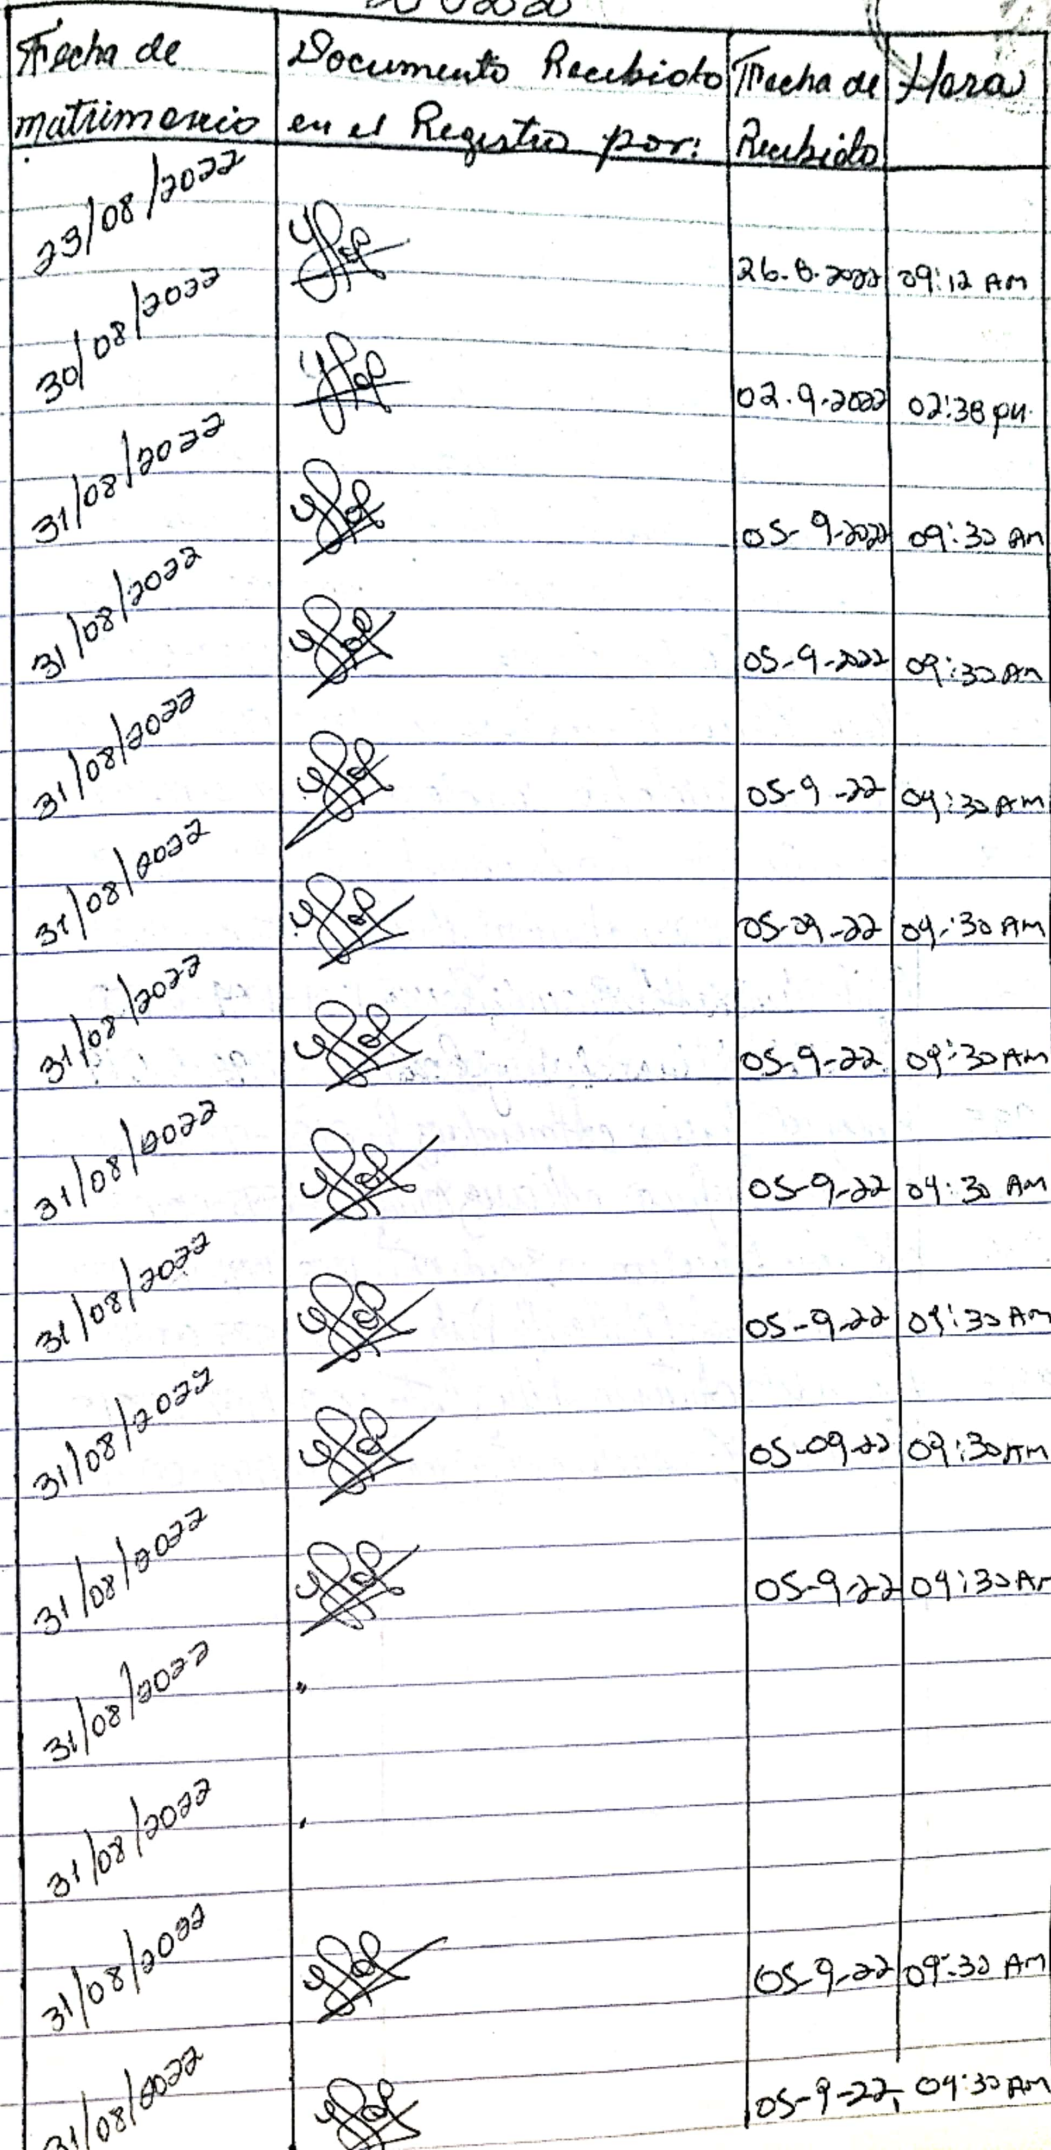 Fecha de matrimonio Documento Recibido en el Registro por: Fecha de Recibido Hora
23/08/2022 26-8-2022 09:12 AM
30/08/2022 02-9-2022 02:38 PM
31/08/2022 05-9-2022 09:30 AM
31/08/2022 05-9-2022 09:30 AM
31/08/2022 05-9-22 09:30 AM
31/08/2022 05-09-22 09:30 AM
31/08/2022 05-9-22 09:30 AM
31/08/2022 05-9-22 09:30 AM
31/08/2022 05-9-22 09:30 AM
31/08/2022 05-09-22 09:30 AM
31/08/2022 05-9-22 09:30 AM
31/08/2022
31/08/2022
31/08/2022 05-9-22 09:30 AM
31/08/2022 05-9-22, 09:30 AM